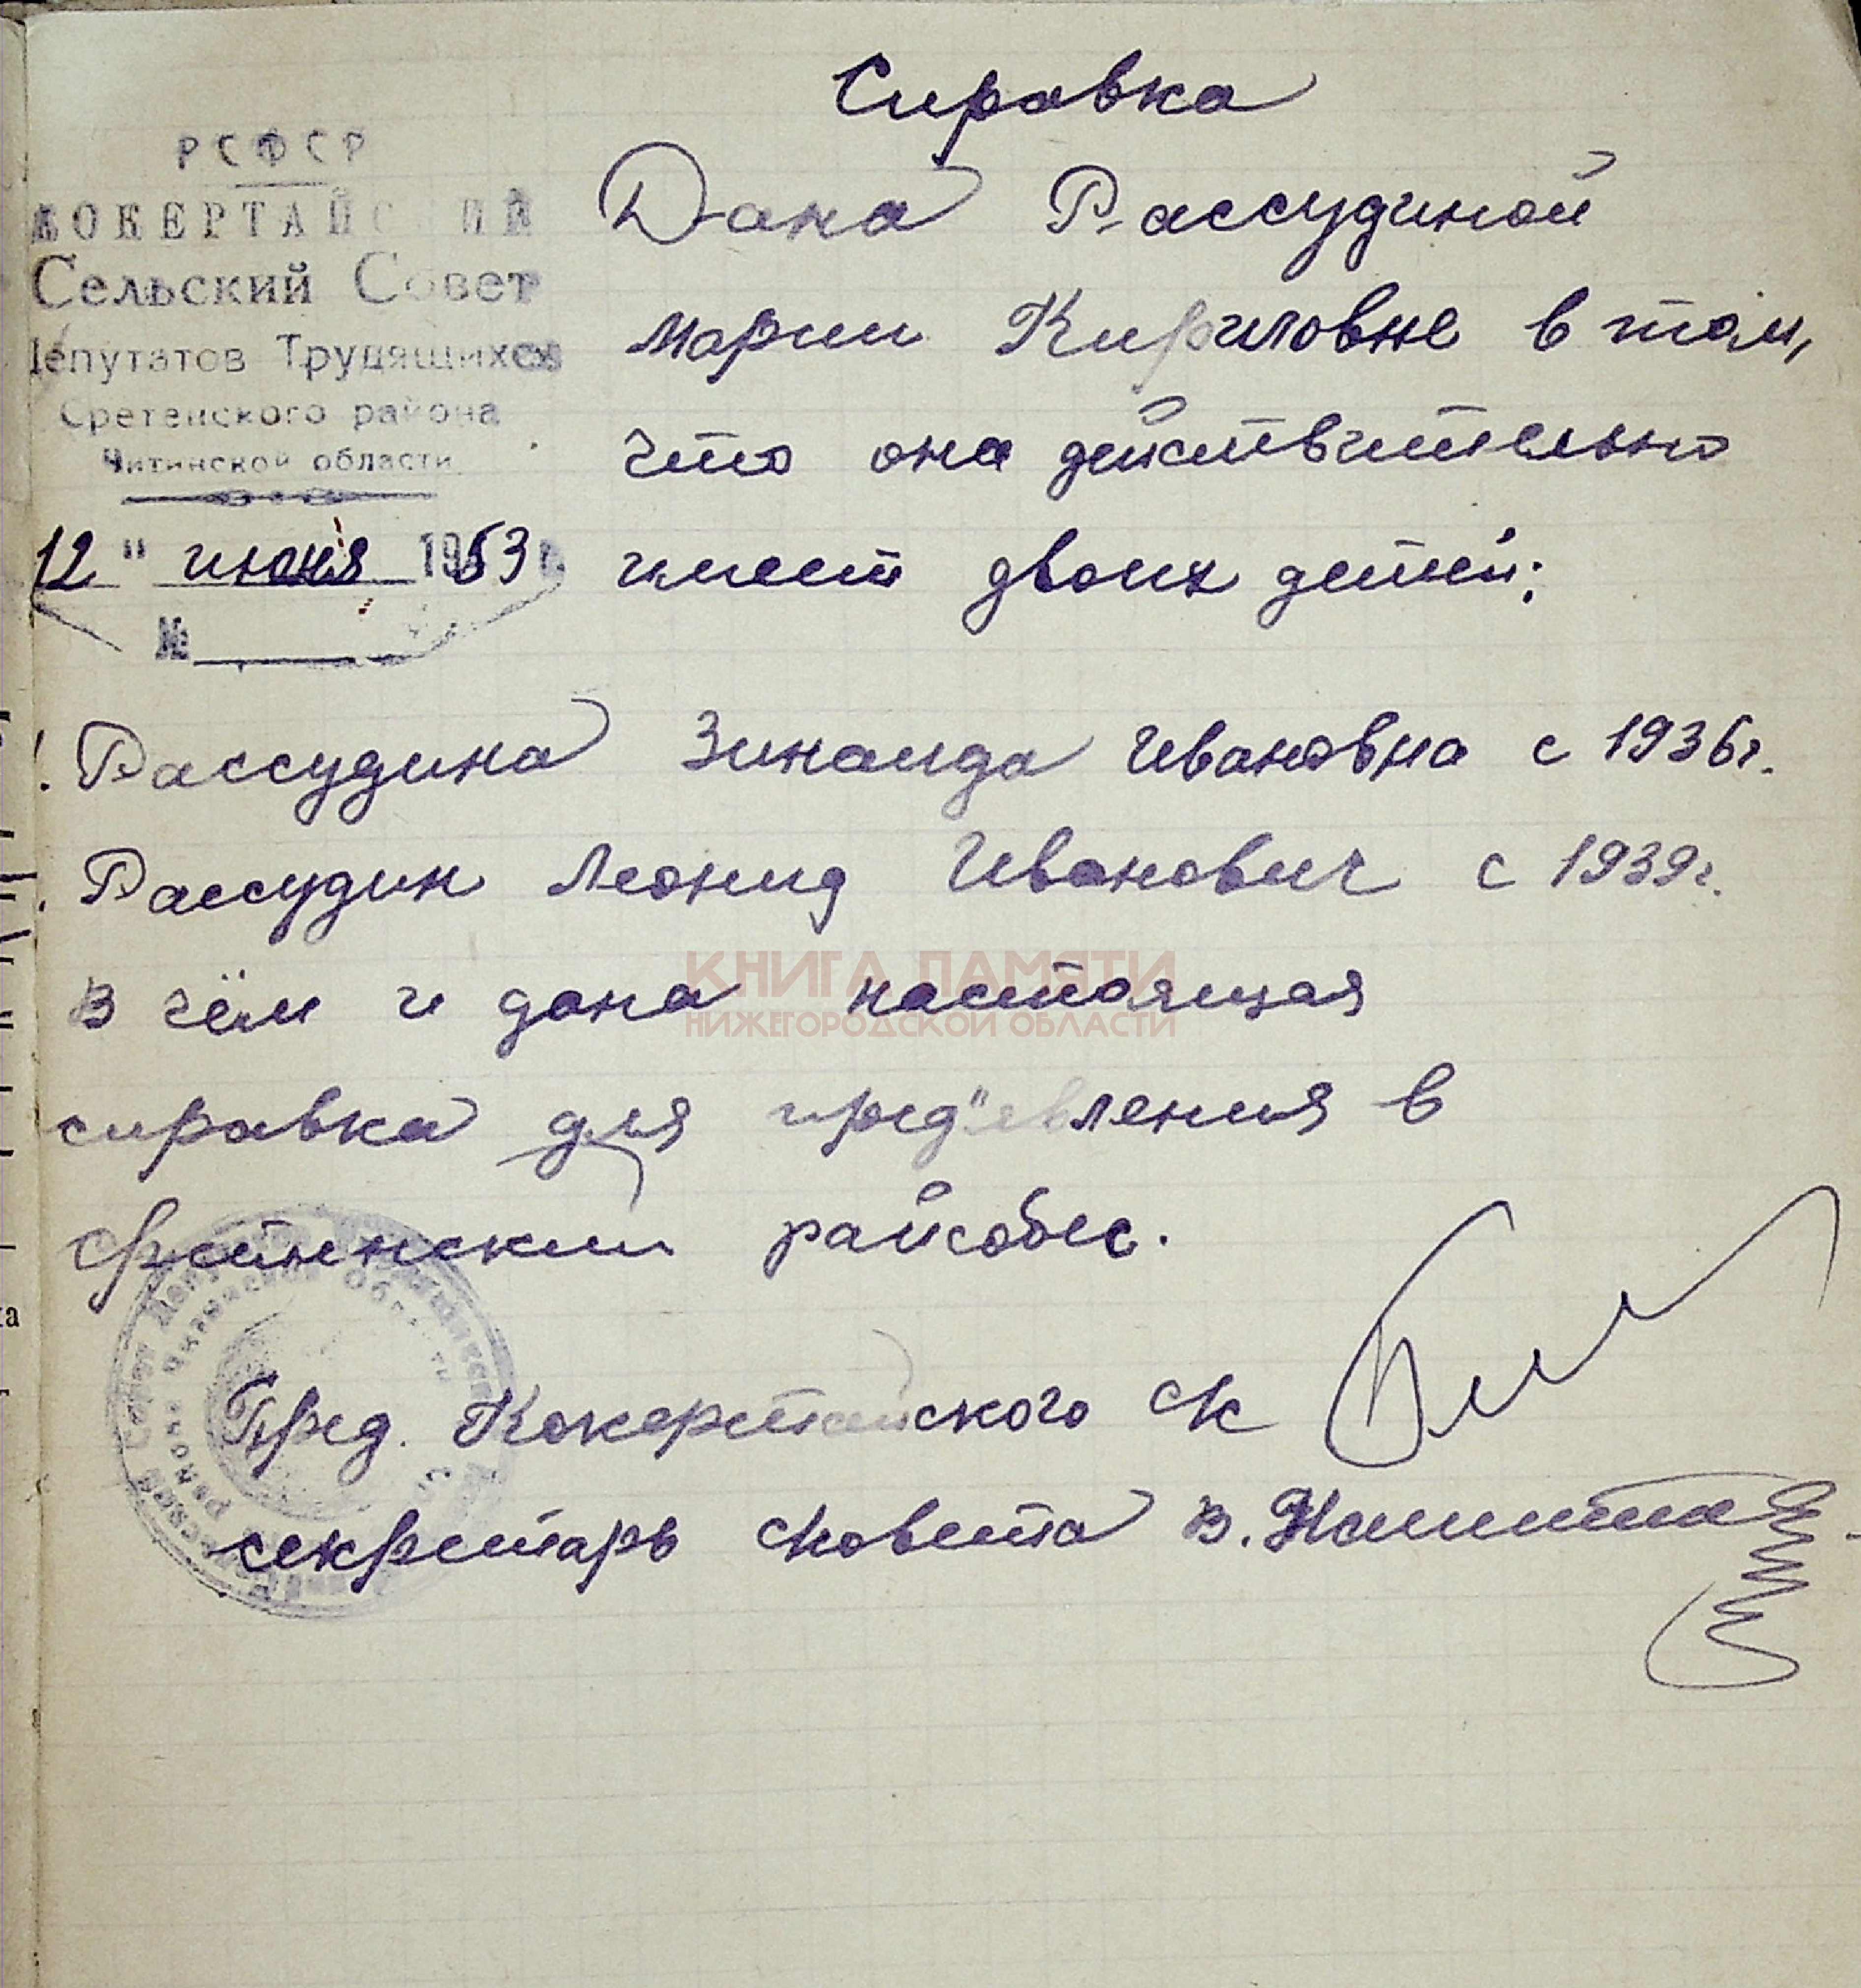 Справка
РСФСР
КОКЕРТАЙСКИЙ
Сельский Совет
Депутатов Трудящихся
Сретенского района
Читинской области
12 " июня 1953 г.
№
Дана Рассудиной
Марии Кириловне в том,
что она действительно
имеет двоих детей:
1. Рассудина Зинаида Ивановна с 1936г.
Рассудин Леонид Иванович с 1939г.
в чём и дана настоящая
справка для пред"явления в
Сретенский райсобес.
КНИГА ПАМЯТИ
НИЖЕГОРОДСКОЙ ОБЛАСТИ
Пред. Кокертайского с/с
секретарь с/совета В.